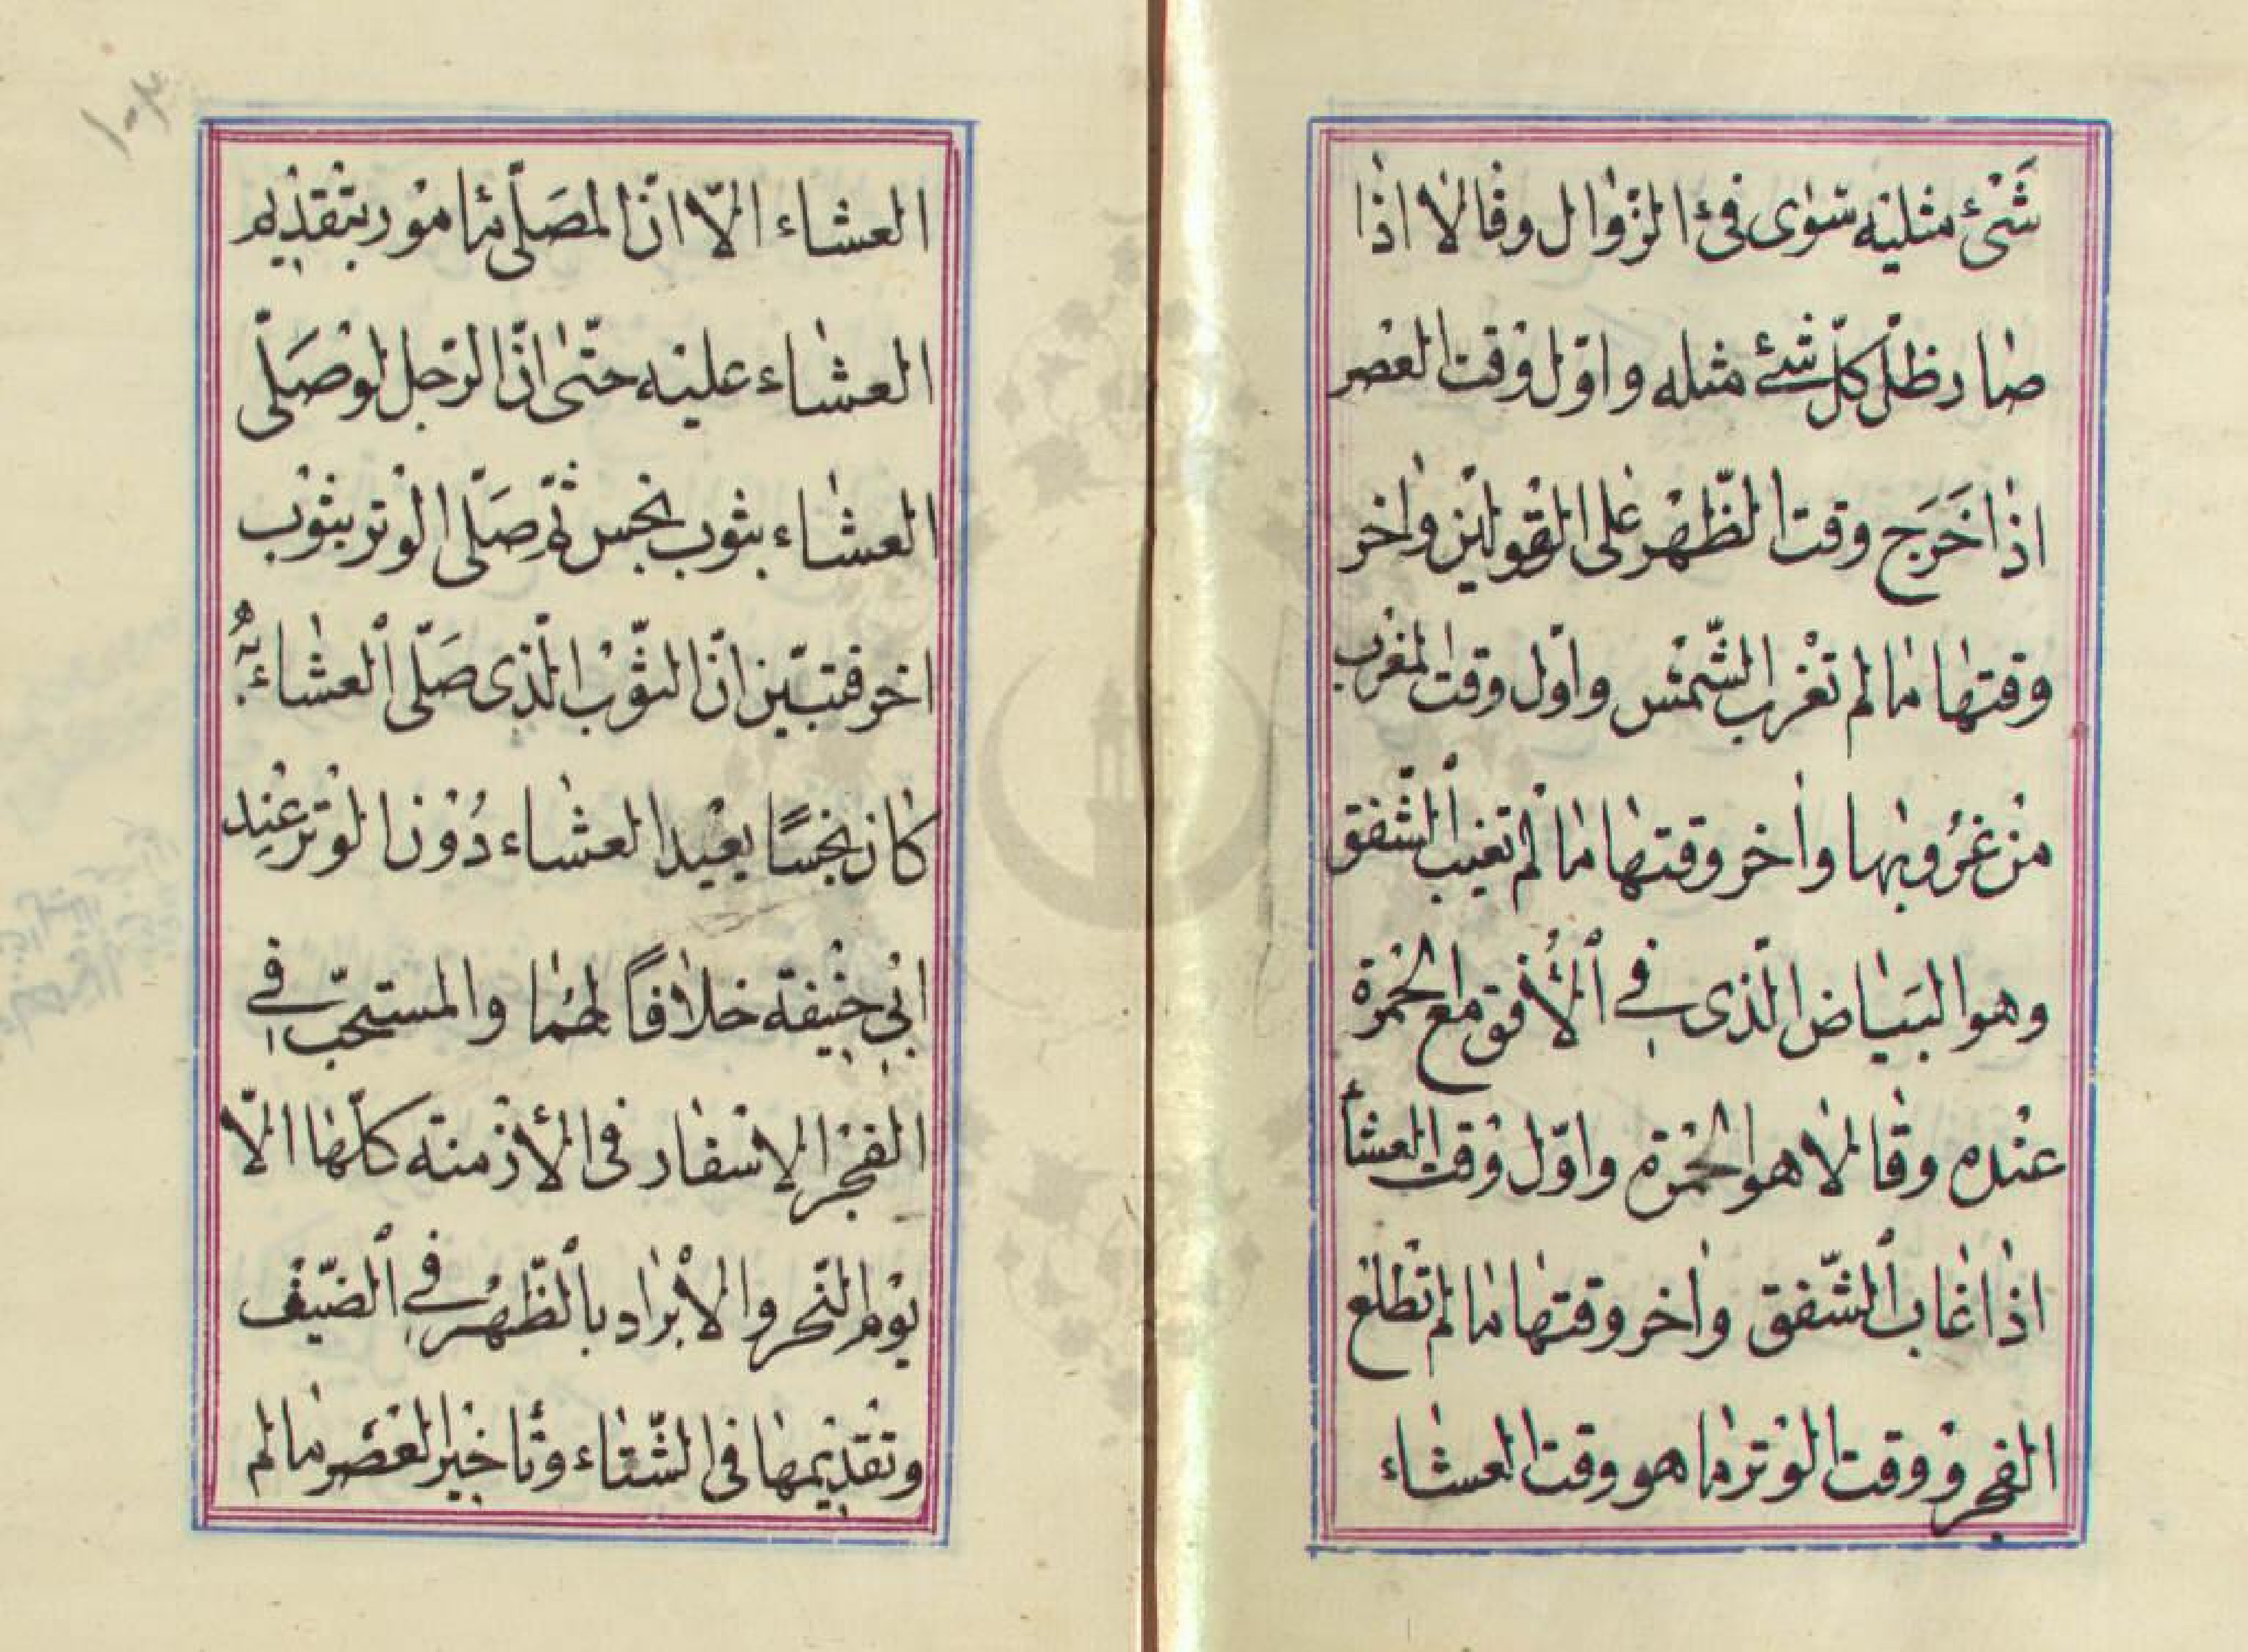 شَیْئٍ مثلیْه سَوٰی فیْءِ الزّوٰال وقٰالاٰ اذٰا
صٰار ظلّ کلّ شیْئٍ مثله واوّل وقت العصْر
اذٰا خَرَج وقت الظّهْر عَلی القوْلیْن واٰخر
وقتهٰا مٰا لم تغْرب الشّمْس واوّل وقت المغْرب
منْ غرُوبهٰا واٰخر وقتهٰا مٰا لمْ تغب الشّفق
وهو البَیٰاض الّذی فِی الْأُفق مع الحُمْرة
عنْده وقٰالاٰ هو الحُمْرة واوّل وقْت العشٰا
اذٰا غٰاب الشّفق واٰخر وقتهٰا مٰا لم تطلع
الفجْر ووقت الوْتر مٰا هو وقت العشٰاء
العشٰاء الّا انّ المصَلّی مٔامُوْر بتقْدِیْم
العشٰاء علیْه حتّٰی انّ الرّجل لوْ صَلّی
العشٰاء بثوْب نجس ثمّ صَلّی الوْتر بثوْب
اخر فتبیّن انّ الثّوْب الّذی صَلّی العشٰاء بهُ
کٰان نجسًا یعیْد العشٰاء دُوْن الوْتر عنِد
ابِی حنِیْفة خلاٰفاً لهُمٰا والمستحبّ فِی
الفجْر الاسْفٰار فی الأزْمنة کلّهٰا الّا
یوْم النّحر والابْرٰاد بالظّهْر فِی الصّیْف
وتقدِیْمهٰا فی الشّتٰاء وتٔاخیْر العصْر مٰا لم